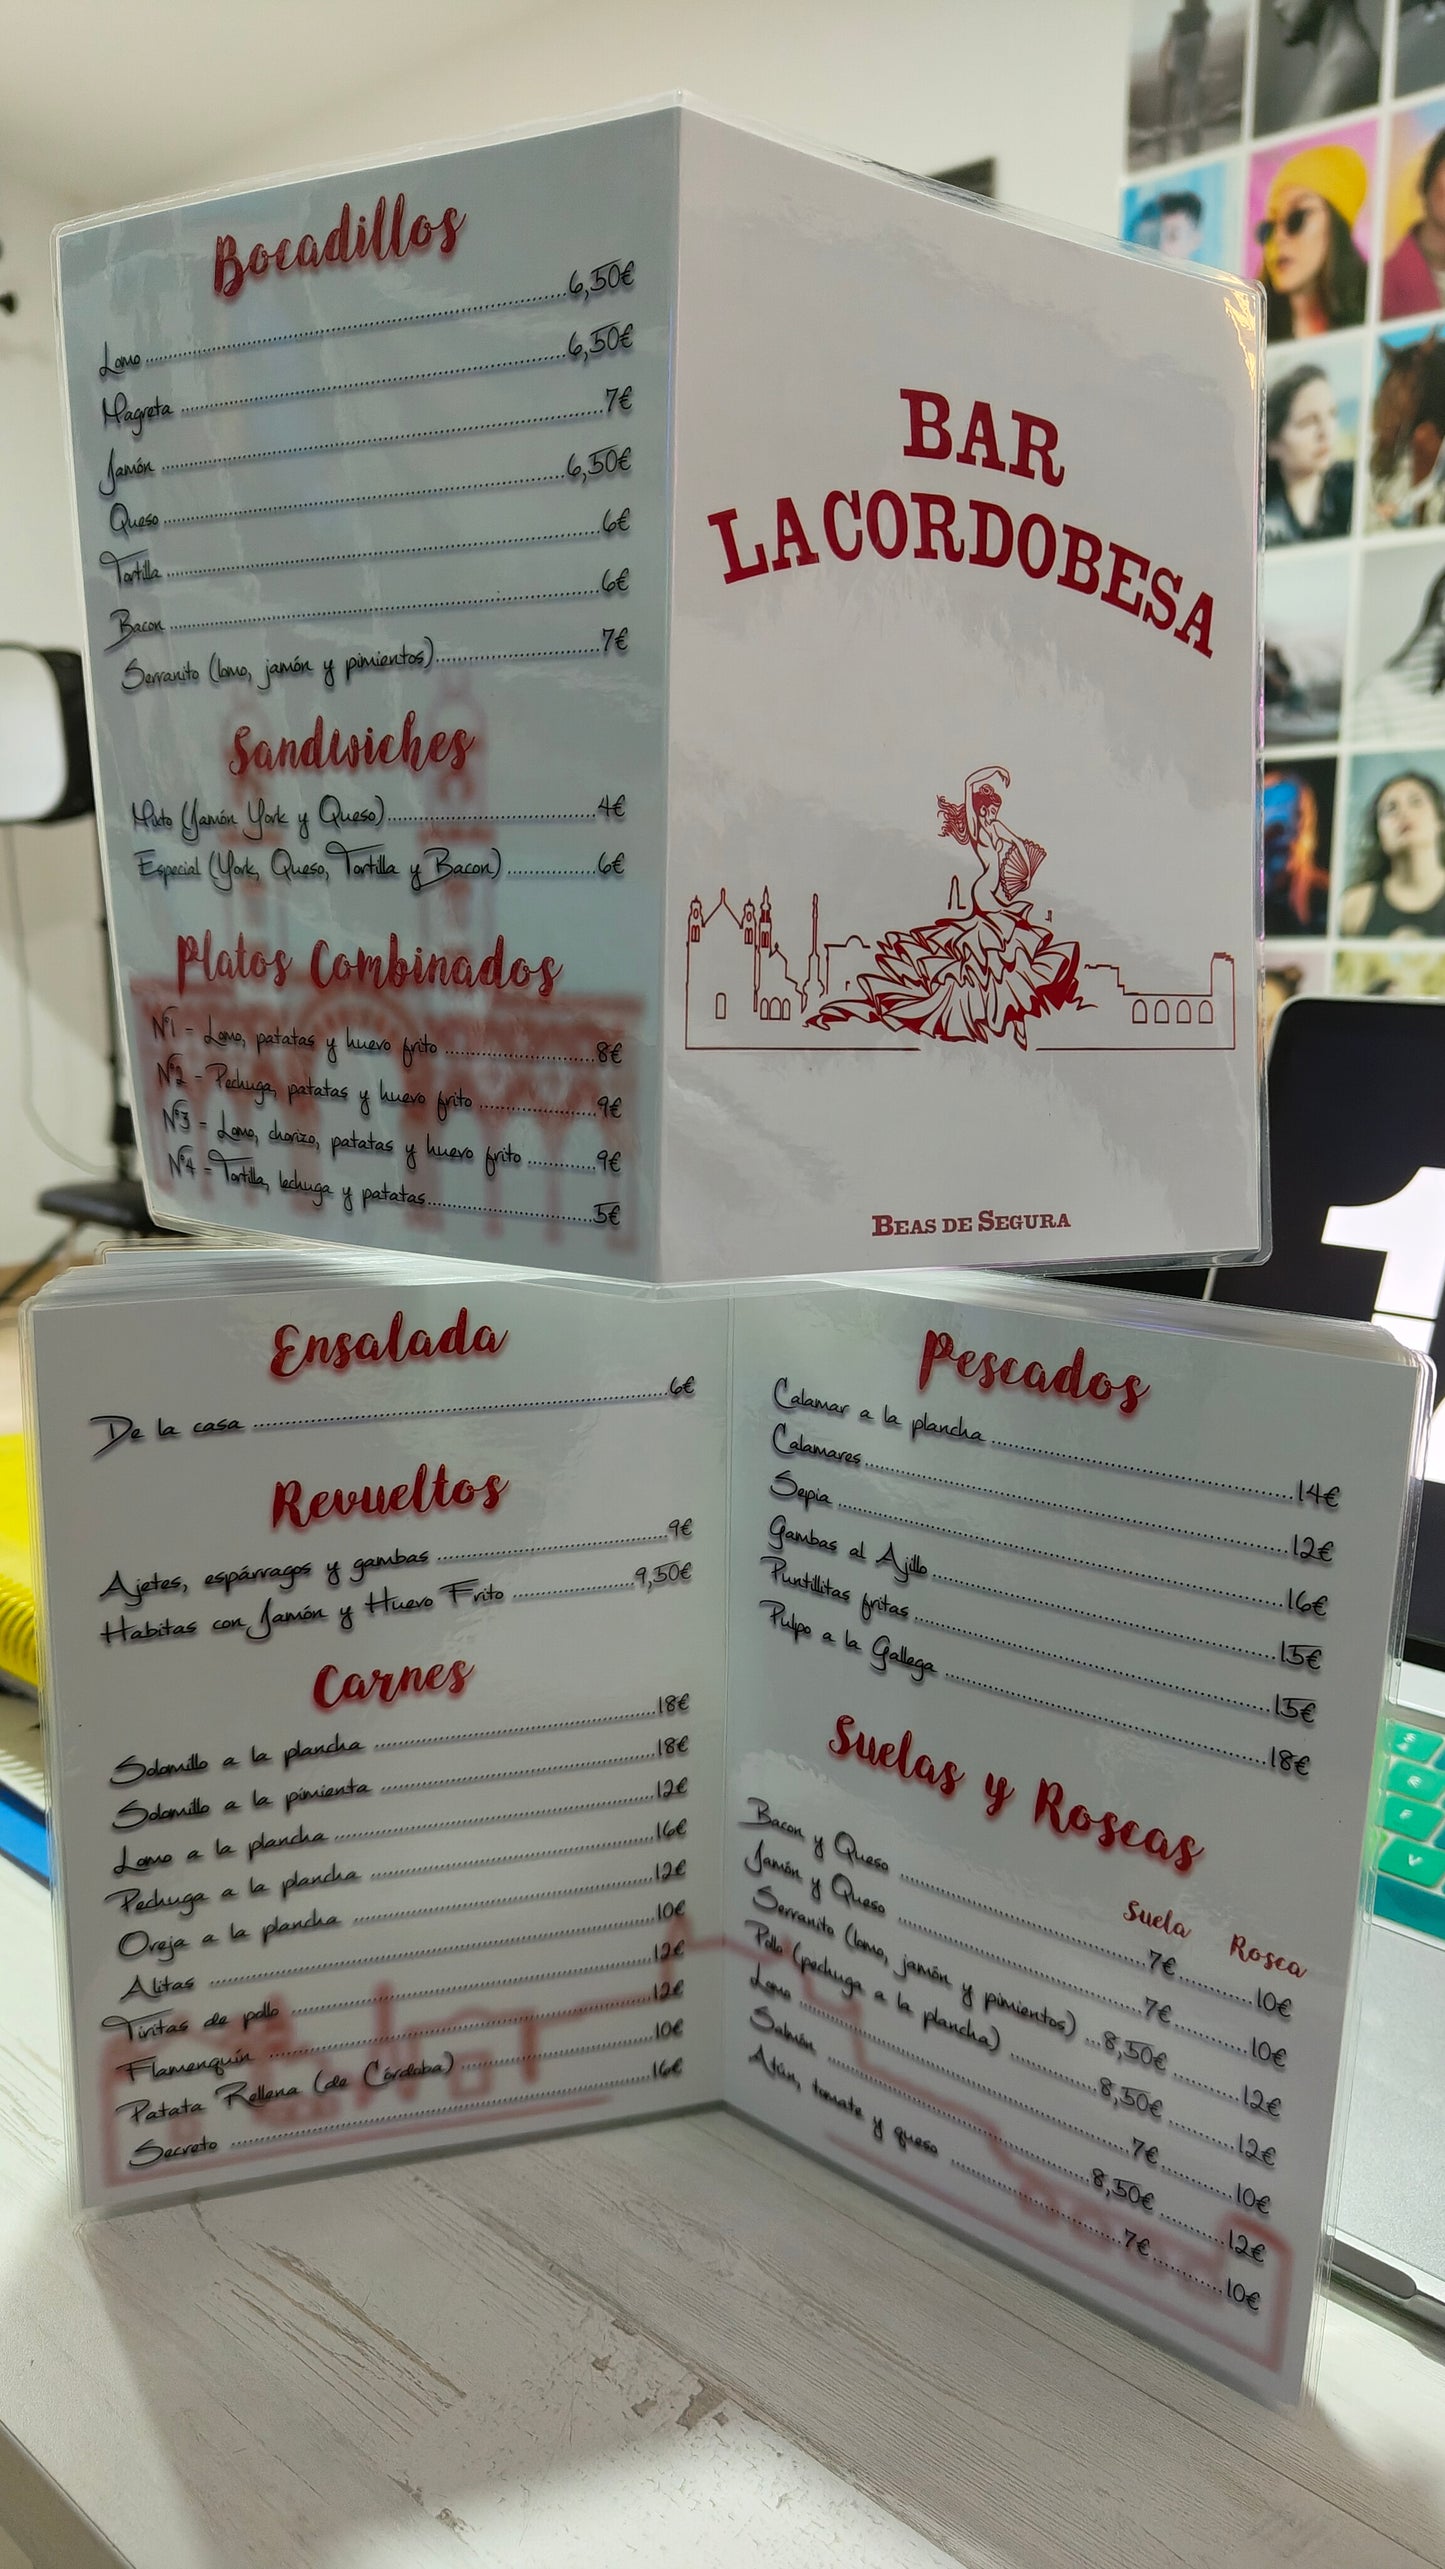 Bocadillos
Lomo ........ 6,50€
Magreta ........ 6,50€
Jamón ........ 7€
Queso ........ 6,50€
Tortilla ........ 6€
Bacon ........ 6€
Serranito (lomo, jamón y pimientos) ........ 7€
Sandwiches
Mixto (Jamón York y Queso) ........ 4€
Especial (York, Queso, Tortilla y Bacon) ........ 6€
Platos Combinados
Nº1 - Lomo, patatas y huevo frito ........ 8€
Nº2 - Pechuga, patatas y huevo frito ........ 9€
Nº3 - Lomo, chorizo, patatas y huevo frito ........ 9€
Nº4 - Tortilla, lechuga y patatas ........ 5€
BAR
LA CORDOBESA
BEAS DE SEGURA
Ensalada
De la casa ........ 6€
Revueltos
Ajetes, espárragos y gambas ........ 9€
Habitas con Jamón y Huevo Frito ........ 9,50€
Carnes
Solomillo a la plancha ........ 18€
Solomillo a la pimienta ........ 18€
Lomo a la plancha ........ 12€
Pechuga a la plancha ........ 16€
Oreja a la plancha ........ 12€
Alitas ........ 10€
Tiritas de pollo ........ 12€
Flamenquín ........ 12€
Patata Rellena (de Córdoba) ........ 10€
Secreto ........ 16€
Pescados
Calamar a la plancha ........ 14€
Calamares ........ 12€
Sepia ........ 16€
Gambas al Ajillo ........ 15€
Puntillitas fritas ........ 15€
Pulpo a la Gallega ........ 18€
Suelas y Roscas
Suela Rosca
Bacon y Queso ........ 7€ ........ 10€
Jamón y Queso ........ 7€ ........ 10€
Serranito (lomo, jamón y pimientos) ... 8,50€ ........ 12€
Pollo (pechuga a la plancha) ........ 8,50€ ........ 12€
Lomo ........ 7€ ........ 10€
Salmón ........ 8,50€ ........ 12€
Atún, tomate y queso ........ 7€ ........ 10€